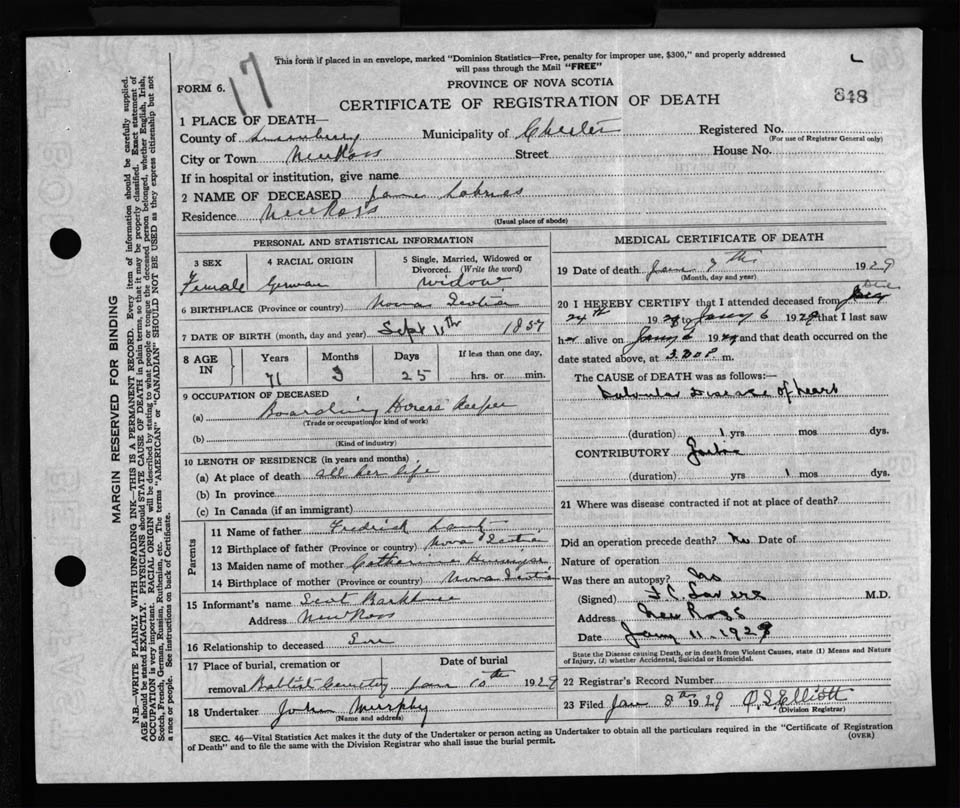 This form if placed in an envelope, marked "Dominion Statistics—Free, penalty for improper use, $300," and properly addressed
will pass through the Mail "FREE"
17
L
FORM 6.
PROVINCE OF NOVA SCOTIA
CERTIFICATE OF REGISTRATION OF DEATH
848
1 PLACE OF DEATH—
County of Lunenburg Municipality of Chester Registered No.
(For use of Registrar General only)
City or Town New Ross Street House No.
If in hospital or institution, give name
2 NAME OF DECEASED
Residence New Ross
(Usual place of abode)
PERSONAL AND STATISTICAL INFORMATION
3 SEX 4 RACIAL ORIGIN 5 Single, Married, Widowed or Divorced. (Write the word)
Female German widow
6 BIRTHPLACE (Province or country) Nova Scotia
7 DATE OF BIRTH (month, day and year) Sept 11th 1857
8 AGE IN Years Months Days If less than one day,
71 3 25 hrs. or min.
9 OCCUPATION OF DECEASED
(a) Boarding House Keeper
(Trade or occupation or kind of work)
(b)
(Kind of industry)
10 LENGTH OF RESIDENCE (in years and months)
(a) At place of death all her life
(b) In province
(c) In Canada (if an immigrant)
Parents
11 Name of father Fredrick
12 Birthplace of father (Province or country) Nova Scotia
13 Maiden name of mother Catherine
14 Birthplace of mother (Province or country) Nova Scotia
15 Informant's name Scot
Address New Ross
16 Relationship to deceased
17 Place of burial, cremation or Date of burial
removal Baptist Cemetery Jan 10th 1929
18 Undertaker John Murphy
(Name and address)
MEDICAL CERTIFICATE OF DEATH
19 Date of death Jan 7th 1929
(Month, day and year)
Dec
20 I HEREBY CERTIFY that I attended deceased from
24th 1928 to Jany 6 1929 that I last saw
her alive on Jany 6 1929 and that death occurred on the
date stated above, at 3.00 P. m.
The CAUSE of DEATH was as follows:—
Valvular Disease of heart
(duration) 1 yrs mos dys.
CONTRIBUTORY
(duration) yrs 1 mos dys.
21 Where was disease contracted if not at place of death?
Did an operation precede death? No Date of
Nature of operation
Was there an autopsy? No
(Signed) M.D.
Address New Ross
Date Jany 11. 1929
State the Disease causing Death, or in death from Violent Causes, state (1) Means and Nature
of Injury, (2) whether Accidental, Suicidal or Homicidal.
22 Registrar's Record Number
23 Filed Jan 8th 1929 Elliott
(Division Registrar)
SEC. 46—Vital Statistics Act makes it the duty of the Undertaker or person acting as Undertaker to obtain all the particulars required in the "Certificate of Registration
of Death" and to file the same with the Division Registrar who shall issue the burial permit.
(OVER)
MARGIN RESERVED FOR BINDING
N.B.—WRITE PLAINLY WITH UNFADING INK—THIS IS A PERMANENT RECORD. Every item of information should be carefully supplied.
AGE should be stated EXACTLY. PHYSICIANS should STATE CAUSE OF DEATH in plain terms, so that it may be properly classified. Exact statement of
OCCUPATION is very important. RACIAL ORIGIN will be described by stating to what people or tongue the deceased person belonged, whether English, Irish,
Scotch, French, German, Russian, Ruthenian, etc. The terms "AMERICAN" or "CANADIAN" SHOULD NOT BE USED as they express citizenship but not
a race or people. See instructions on back of Certificate.